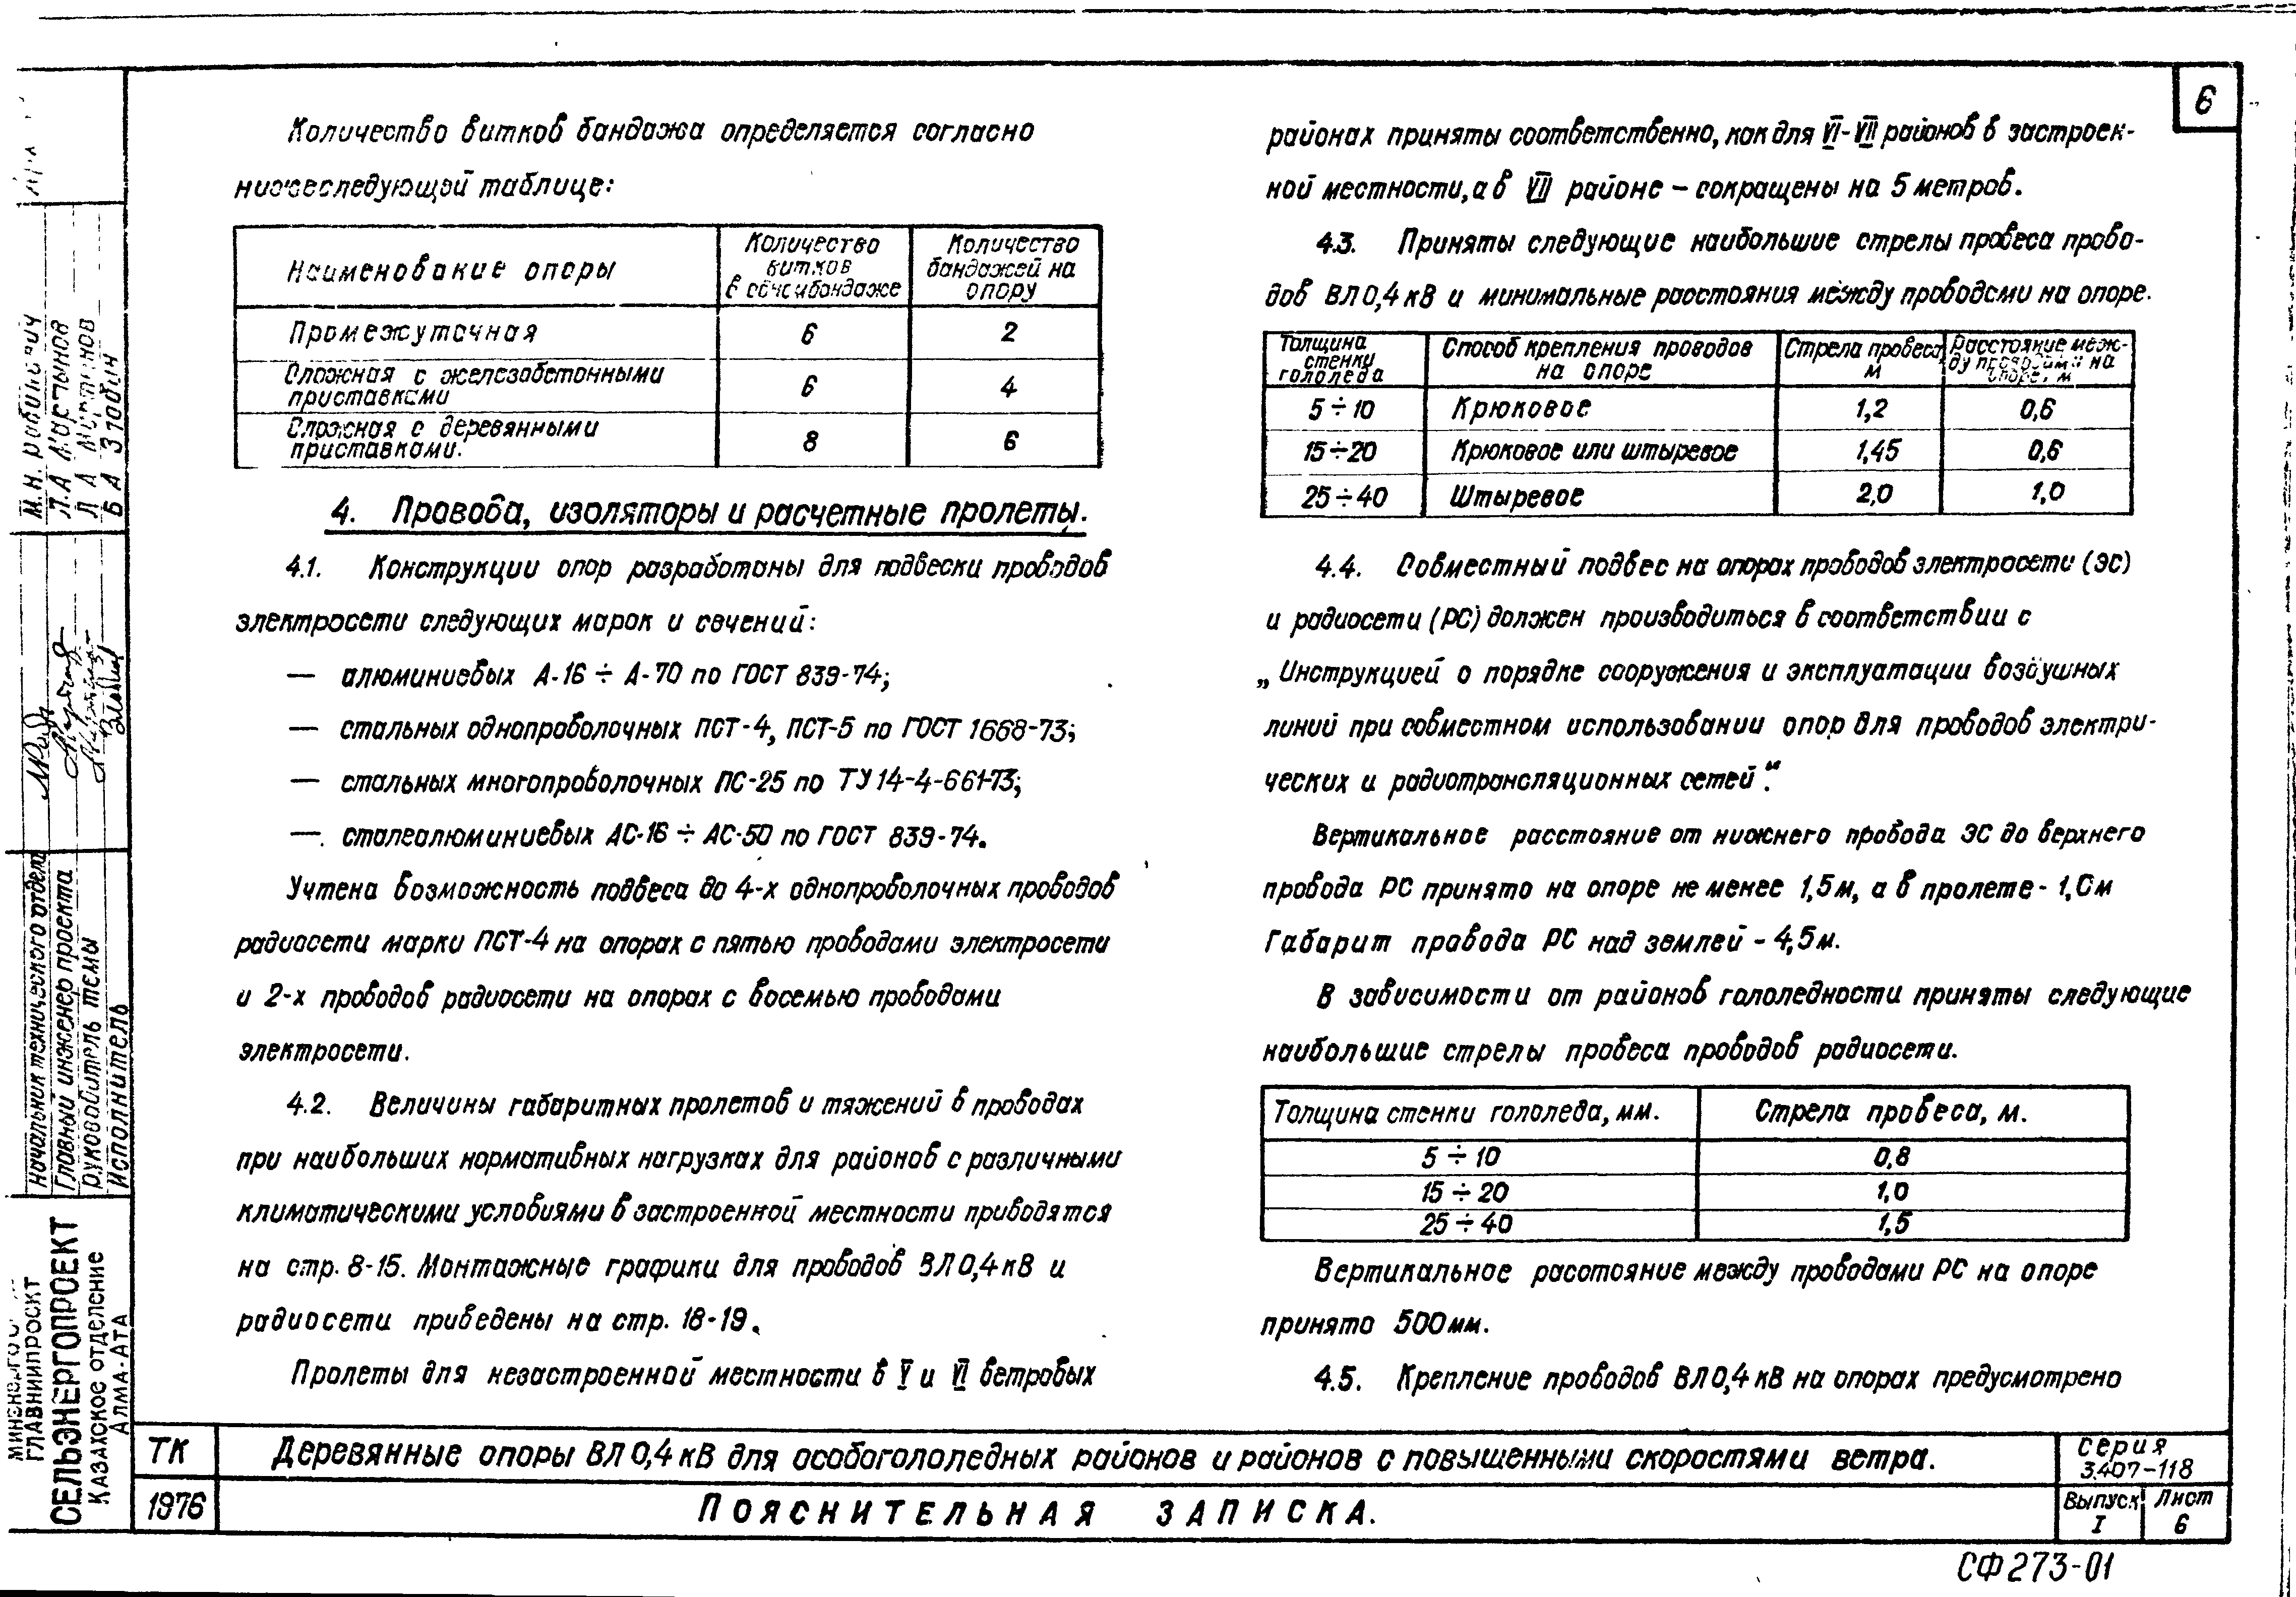 6
Количество витков бандажа определяется согласно
нижеследующей таблице:
Наименование опоры
Количество витков в одном бандаже
Количество бандажей на опору
Промежуточная 6 2
Сложная с железобетонными приставками 6 4
Сложная с деревянными приставками. 8 6
4. Провода, изоляторы и расчетные пролеты.
4.1. Конструкции опор разработаны для подвески проводов
электросети следующих марок и сечений:
— алюминиевых А-16 ÷ А-70 по ГОСТ 839-74;
— стальных однопроволочных ПСТ-4, ПСТ-5 по ГОСТ 1668-73;
— стальных многопроволочных ПС-25 по ТУ 14-4-661-73;
— сталеалюминиевых АС-16 ÷ АС-50 по ГОСТ 839-74.
Учтена возможность подвеса до 4-х однопроволочных проводов
радиосети марки ПСТ-4 на опорах с пятью проводами электросети
и 2-х проводов радиосети на опорах с восемью проводами
электросети.
4.2. Величины габаритных пролетов и тяжений в проводах
при наибольших нормативных нагрузках для районов с различными
климатическими условиями в застроенной местности приводятся
на стр. 8-15. Монтажные графики для проводов ВЛ 0,4 кВ и
радиосети приведены на стр. 18-19.
Пролеты для незастроенной местности в V и VI ветровых
районах приняты соответственно, как для VI-VII районов в застроен-
ной местности, а в VII районе – сокращены на 5 метров.
4.3. Приняты следующие наибольшие стрелы провеса прово-
дов ВЛ 0,4 кВ и минимальные расстояния между проводами на опоре.
Толщина стенки гололеда
Способ крепления проводов на опоре
Стрела провеса, м
Расстояние меж-ду проводами на опоре, м
5 ÷ 10 Крюковое 1,2 0,6
15÷20 Крюковое или штыревое 1,45 0,6
25÷40 Штыревое 2,0 1,0
4.4. Совместный подвес на опорах проводов электросети (ЭС)
и радиосети (РС) должен производиться в соответствии с
„Инструкцией о порядке сооружения и эксплуатации воздушных
линий при совместном использовании опор для проводов электри-
ческих и радиотрансляционных сетей".
Вертикальное расстояние от нижнего провода ЭС до верхнего
провода РС принято на опоре не менее 1,5м, а в пролете - 1,0м
Габарит провода РС над землей - 4,5м.
В зависимости от районов гололедности приняты следующие
наибольшие стрелы провеса проводов радиосети.
Толщина стенки гололеда, мм. Стрела провеса, м.
5 ÷ 10 0,8
15 ÷ 20 1,0
25 ÷ 40 1,5
Вертикальное расстояние между проводами РС на опоре
принято 500мм.
4.5. Крепление проводов ВЛ 0,4 кВ на опорах предусмотрено
ТК
1976
Деревянные опоры ВЛ 0,4 кВ для особогололедных районов и районов с повышенными скоростями ветра.
Пояснительная записка.
серия
3.407-118
Выпуск I
Лист 6
СФ 273-01
Начальник технического отдела М.Н. Рабинович
Главный инженер проекта Л.А Мартынов
Руководитель темы Л А Мартынов
Исполнитель Б А Злобин
ГЛАВНИИПРОЕКТ
СЕЛЬЭНЕРГОПРОЕКТ
КАЗАХСКОЕ ОТДЕЛЕНИЕ
АЛМА-АТА